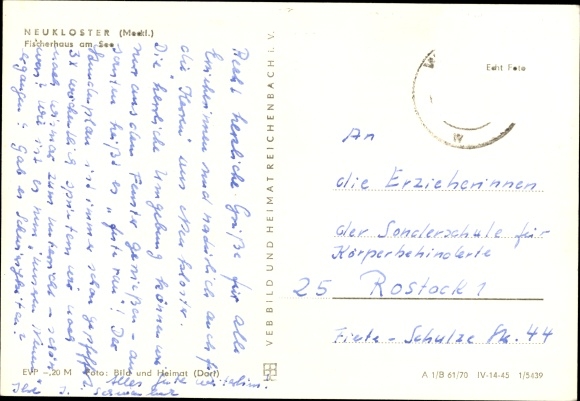 NEUKLOSTER (Meckl.)
Fischerhaus am See
Recht herzliche Grüße für alle
Erzieherinnen und natürlich auch für
die "Kerni" aus Neukloster.
Die herrliche Umgebung können wir
nur aus dem Fenster genießen - an-
sonsten heißt es "gute ran"! Der
Stundenplan ist immer schon gepfeffert
3x wöchentlich wir noch
nach Wismar zum Unterricht - schön
was? Wie ist es nun unseren
ergangen? Gab es Schwierigkeiten?
Alles Gute weiterhin!
Ihr
VEB BILD UND HEIMAT REICHENBACH I. V.
Echt Foto
An
die Erzieherinnen
der Sonderschule für
Körperbehinderte
25 Rostock 1
Fiete-Schulze Str. 44
EVP -,20 M Foto: Bild und Heimat (Dorf)
A 1/B 61/70 IV-14-45 1/5439